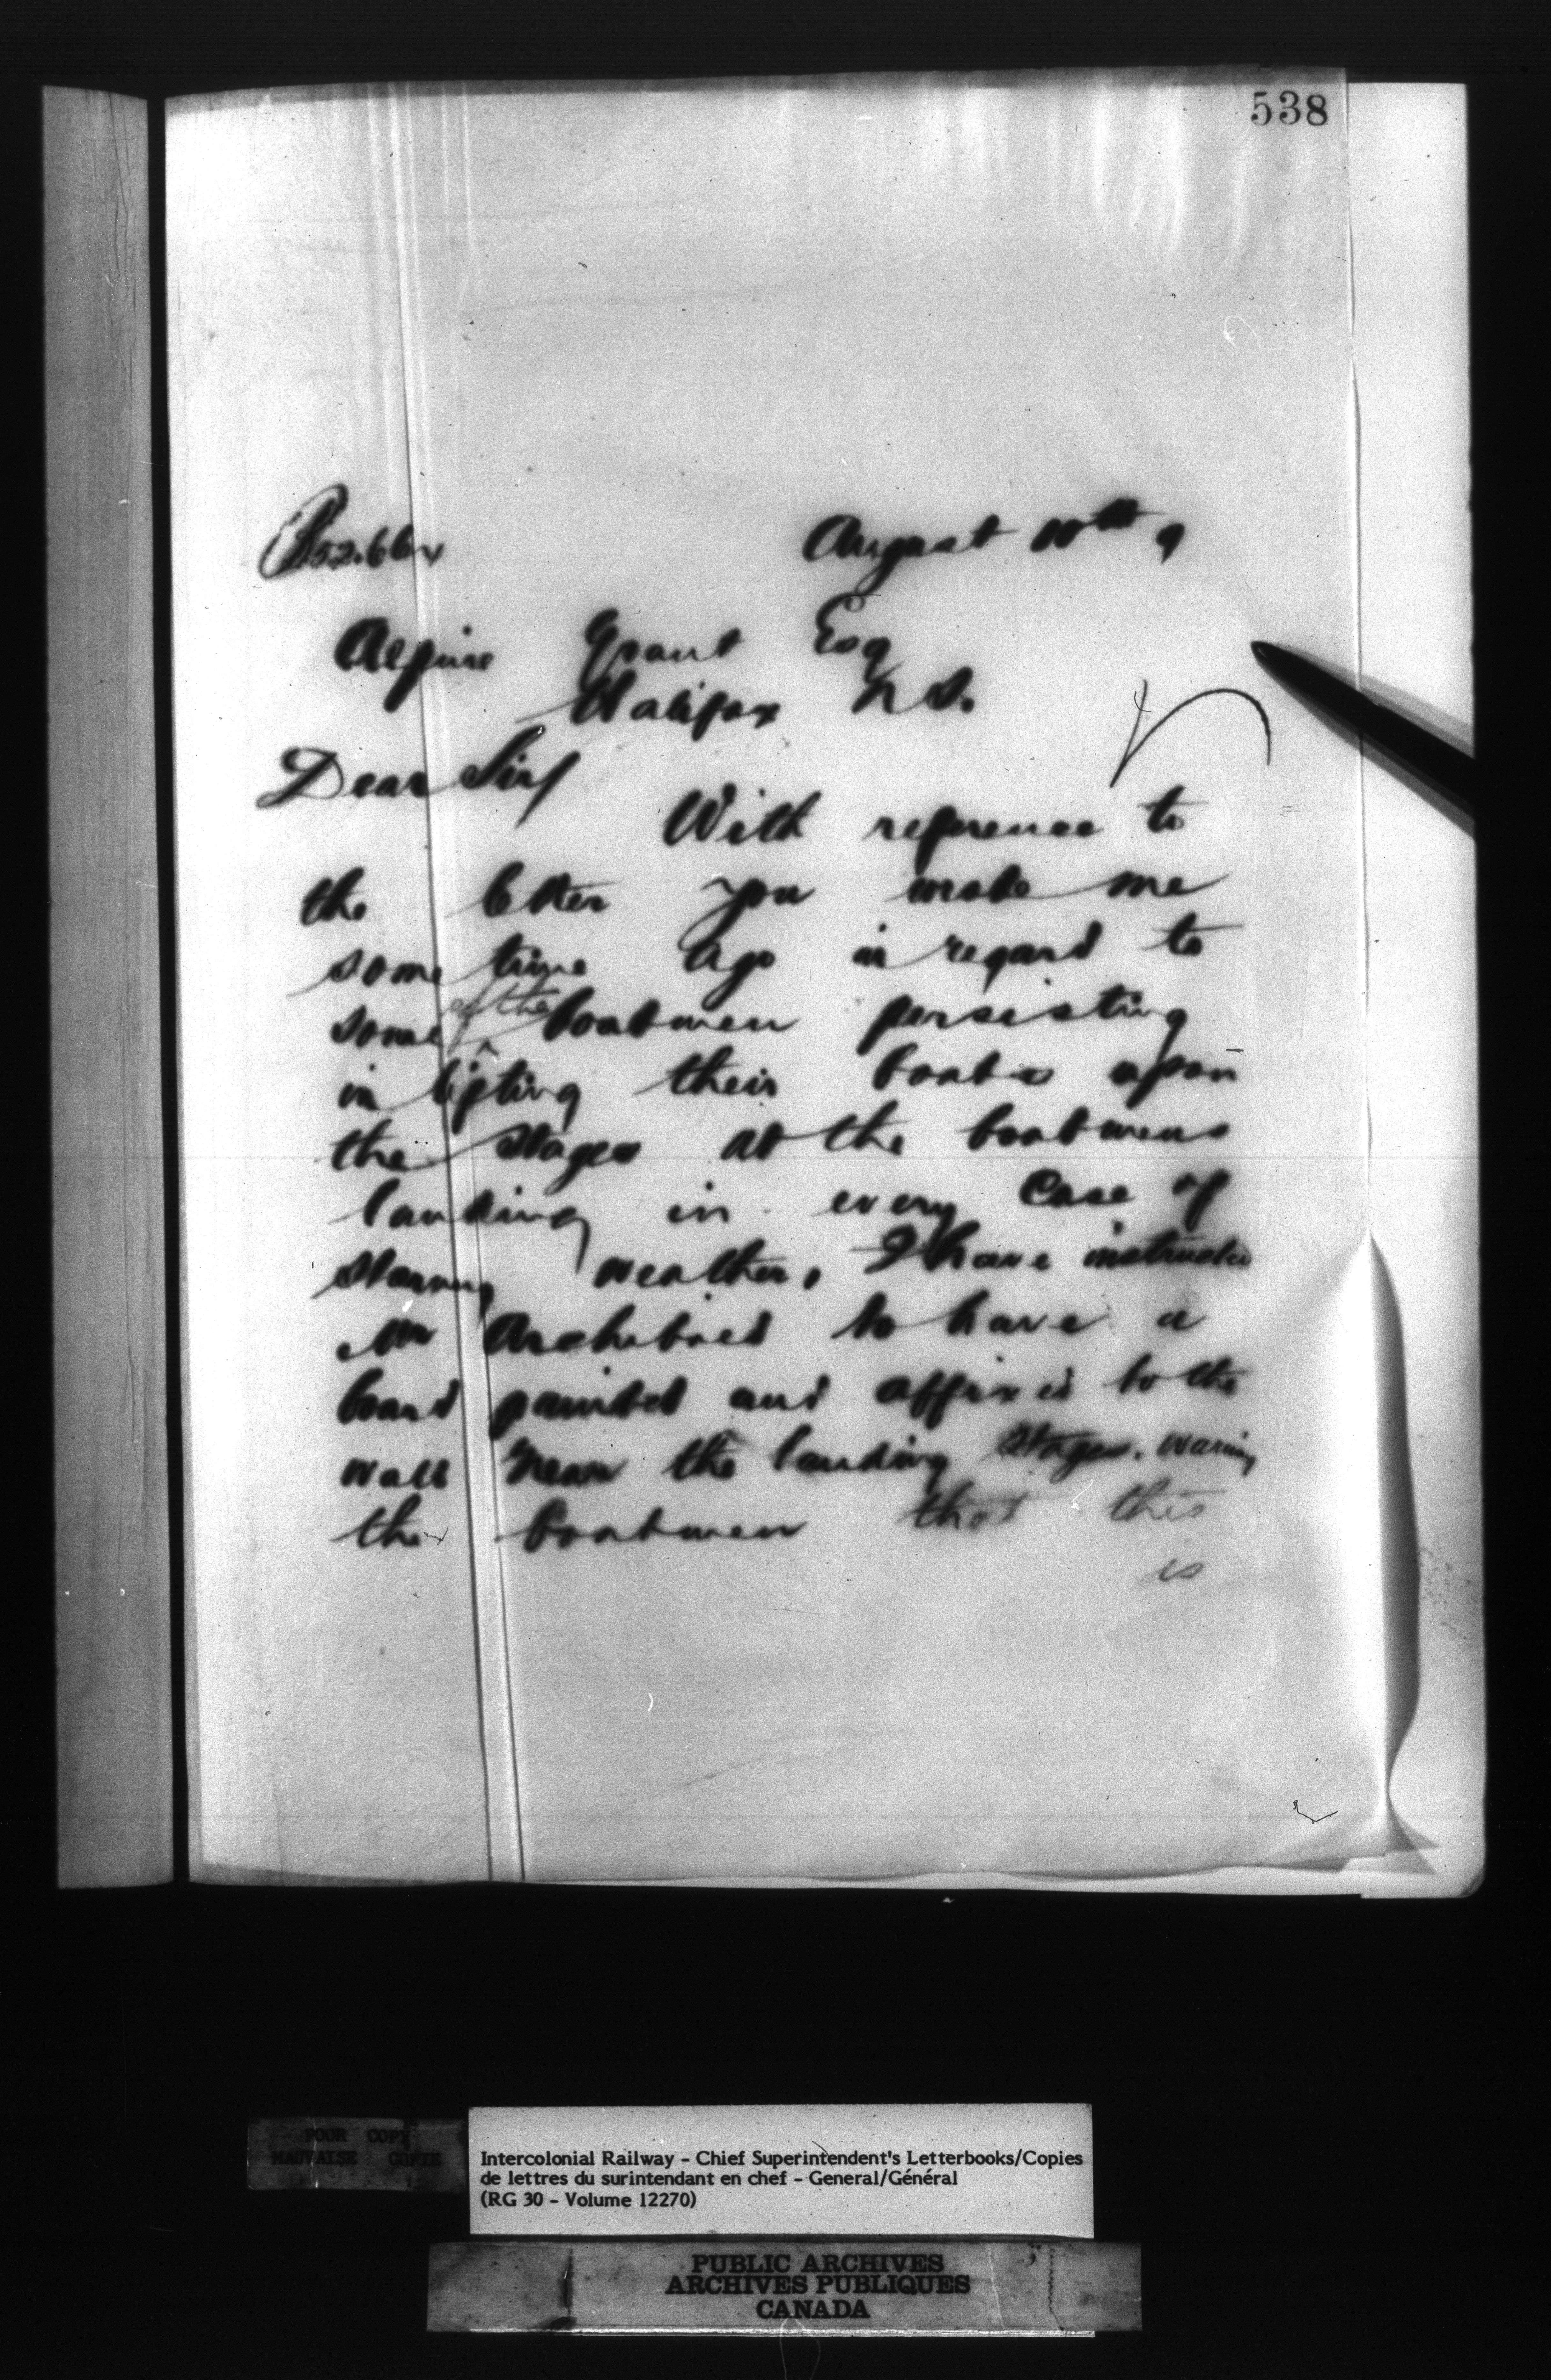 538
August 10th 9
Alpine Grant Esq
Halifax N S.
Dear Sir/
With reference to
the letter you wrote me
some time ago in regard to
some of the boatmen persisting
in lifting their boats upon
the stages at the boatmens
landing in every case of
stormy weather, I have instructed
Mr Archibald to have a
board painted and affixed to the
wall near the landing stages. warning
the boatmen that this
is
POOR COPY
MAUVAISE COPIE
Intercolonial Railway - Chief Superintendent's Letterbooks/Copies
de lettres du surintendant en chef - General/Général
(RG 30 - Volume 12270)
PUBLIC ARCHIVES
ARCHIVES PUBLIQUES
CANADA